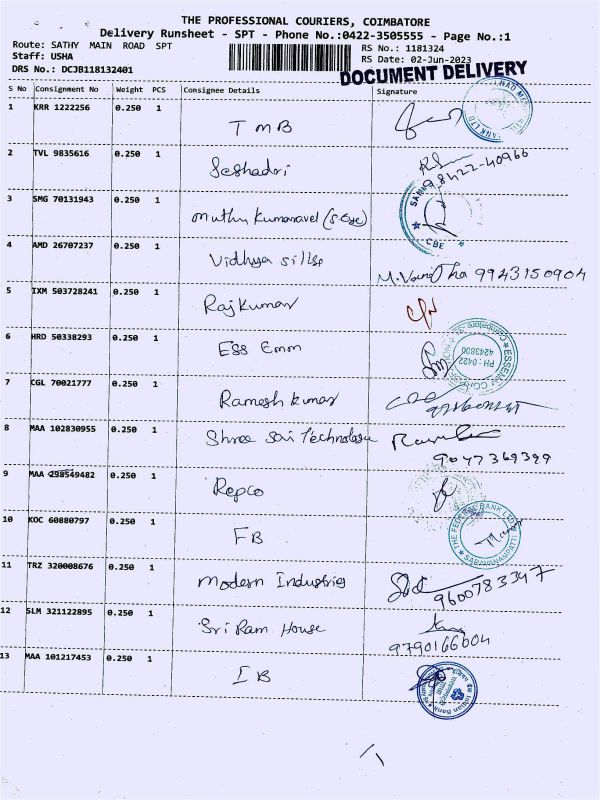 THE PROFESSIONAL COURIERS, COIMBATORE
Delivery Runsheet - SPT - Phone No.:0422-3505555 - Page No.:1
Route: SATHY MAIN ROAD SPT
RS No.: 1181324
Staff: USHA
RS Date: 02-Jun-2023
DRS No.: DCJB118132401
DOCUMENT DELIVERY
S No Consignment No Weight PCS Consignee Details Signature
1 KRR 1222256 0.250 1 TMB
2 TVL 9835616 0.250 1 Seshadri
98422-40966
3 SMG 70131943 0.250 1 Muthu Kumaravel
CBE
4 AMD 26707237 0.250 1 Vidhya Sills
9943150904
5 IXM 503728241 0.250 1 RajKumar
6 HRD 50338293 0.250 1 Ess Emm
PH : 0422
4243800
7 CGL 70021777 0.250 1 Ramesh Kumar
8 MAA 102830955 0.250 1 Shree Sai Technology
9047369399
9 MAA 298549482 0.250 1 Repco
10 KOC 60880797 0.250 1 FB
THE FEDERAL BANK LTD
SARAVANAMPATTI
11 TRZ 320008676 0.250 1 Modern Industries
9600783347
12 SLM 321122895 0.250 1 Sri Ram House
9790166004
13 MAA 101217453 0.250 1 IB
Indian Bank